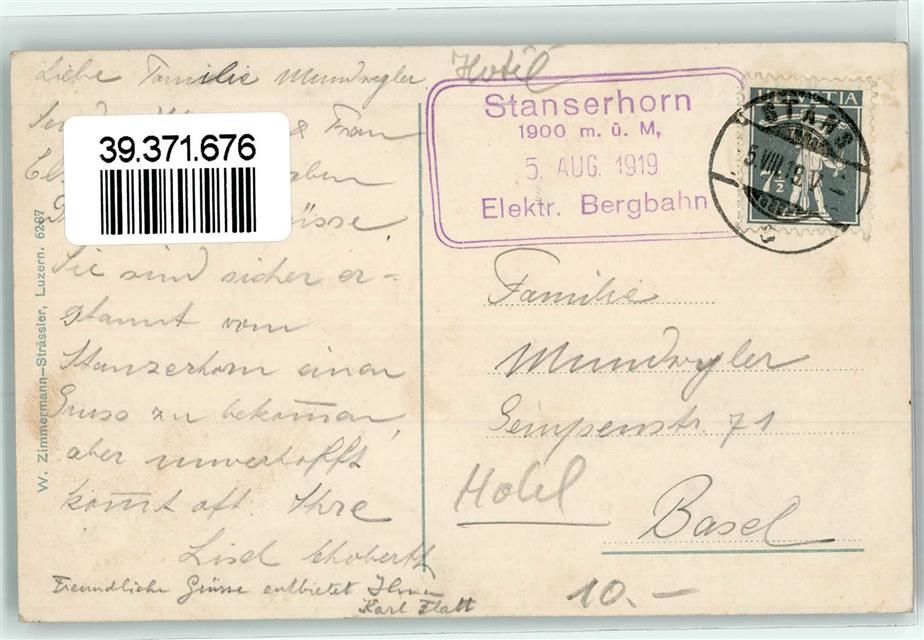 Liebe Familie Mundwyler
& Frau
Sie sind sicher er=
staunt vom
Stanzerhorn einen
Gruss zu bekom̅en,
aber unverhofft
kom̅t oft. Ihre
Lisel
Freundliche Grüsse entbietet Ihnen
Karl Flatt
39.371.676
W. Zimmermann—Strässler, Luzern. 6287
Hotel
Stanserhorn
1900 m. ü. M,
5. AUG. 1919
Elektr. Bergbahn
HELVETIA
7½
STANS
5.VIII.19
Familie
Mundwyler
Gempenstr. 71
Hotel
Basel
10.—